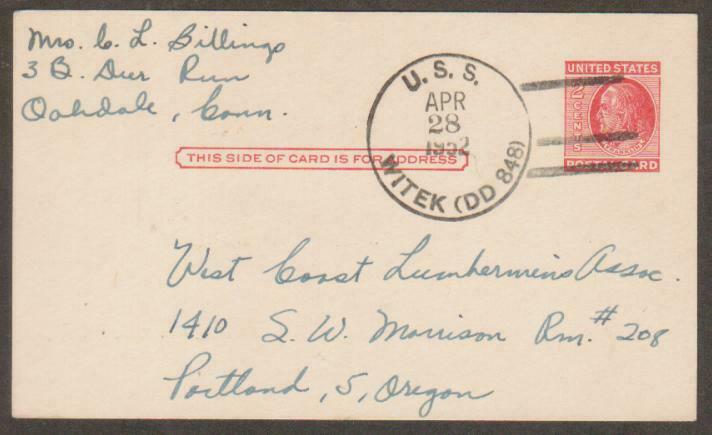 Mrs. C. L. Billings
3 B. Deer Run
Oakdale, Conn.
U. S. S.
APR
28
1952
WITEK (DD 848)
UNITED STATES
2 CENTS
FRANKLIN
POSTAL CARD
THIS SIDE OF CARD IS FOR ADDRESS
West Coast Lumbermens Assoc.
1410 S. W. Morrison Rm. # 208
Portland, 5, Oregon